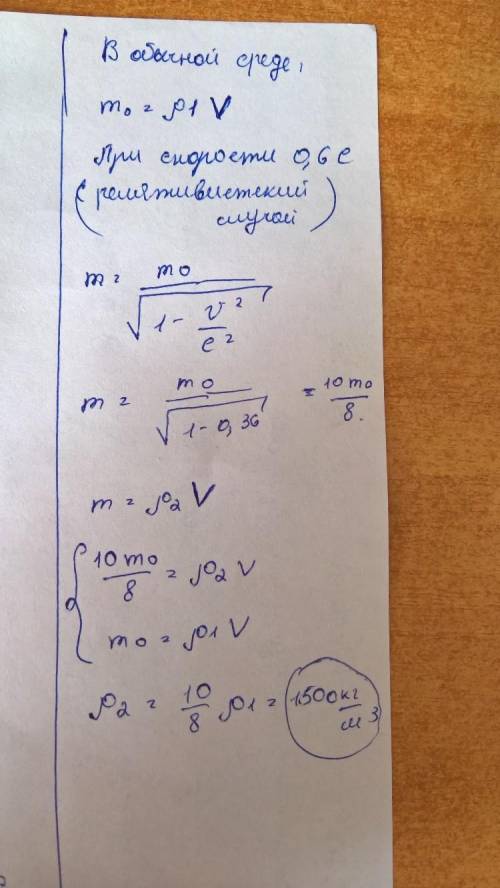 В обычной среде,
m₀ = ρ1 V
При скорости 0,6 c
(релятивистский
случай)
m = m0 / √(1 - v²/c²)
m = m0 / √(1 - 0,36) = 10m0 / 8.
m = ρ₂ V
{ 10m0 / 8 = ρ₂ V
m0 = ρ1 V
ρ₂ = 10/8 ρ1 = 1500 кг/м³